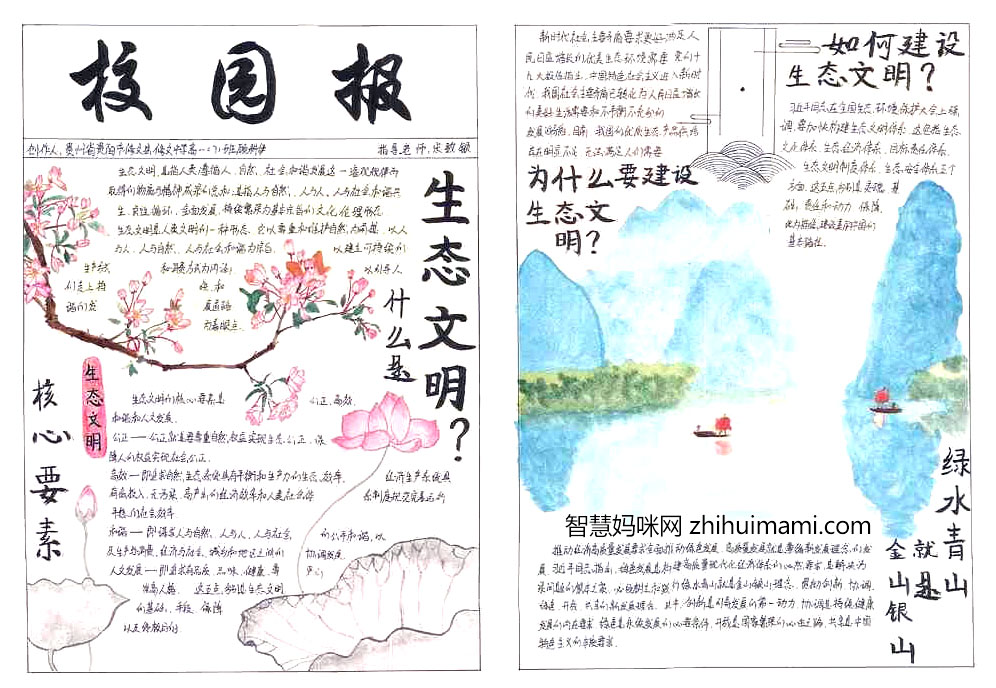 校园报
创作人：贵州省贵阳市修文县修文中学高一
指导老师：宋敏
什么是
生态文明？
生态文明，是指人类遵循人、自然、社会和谐发展这一客观规律而
取得的物质与精神成果的总和；是指人与自然、人与人、人与社会和谐共
生、良性循环、全面发展、持续繁荣为基本宗旨的文化伦理形态。
生态文明是人类文明的一种形态，它以尊重和维护自然为前提，以人
与人、人与自然、人与社会和谐共生为宗旨，以建立可持续的
生产方式和消费方式为内涵，以引导人
们走上持续、和
谐的发展道路
为着眼点。
生态文明
核心要素
生态文明的核心要素是公正、高效、
和谐和人文发展。
公正——公正就是要尊重自然权益实现生态公正，保
障人的权益实现社会公正。
高效——即追求自然生态系统具有平衡和生产力的生态效率、
经济生产系统具
有低投入、无污染、高产出的经济效率和人类社会体
系制度规范完善运行
平稳的社会效率。
和谐——即谋求人与自然、人与人、人与社会
的公平和谐，以
及生产与消费、经济与社会、城乡和地区之间的
协调发展。
人文发展——即追求
品味、健康、尊
严
生态文明
的基础、手段、保障
以及终极目的
新时代社会主要矛盾要求更好满足人
民日益增长的优美生态环境需要。党的十
九大报告指出，中国特色社会主义进入新时
代，我国社会主要矛盾已转化为人民日益增长
的美好生活需要和不平衡不充分的
发展
我国的优质生态产品供给
满足人们需要
为什么要建设
生态文
明？
如何建设
生态文明？
习近平同志在全国生态环境保护大会上强
调，要加快构建生态文明体系。这包括生态
文化体系、生态经济体系、目标责任体系、
生态文明制度体系、生态安全体系五个
方面。这五点分别是灵魂、基
础、责任和动力、保障、
建设美丽中国的
绿水青山
就是
金山银山
智慧妈咪网 zhihuimami.com
推动经济高质量发展要求全面推动绿色发展。高质量发展就是
新发展理念的发
展。习近平同志指出，绿色发展是构建高质量现代化经济体系的必然要求，是解决污
染问题的根本之策。
绿水青山就是金山银山理念，贯彻创新、协调、
绿色、开放、共享的新发展理念。
创新是引领发展的第一动力，协调是持续健康
发展的内在要求，绿色是永续发展的必要条件，开放是国家繁荣的必由之路，共享是中国
特色社会主义的本质要求。